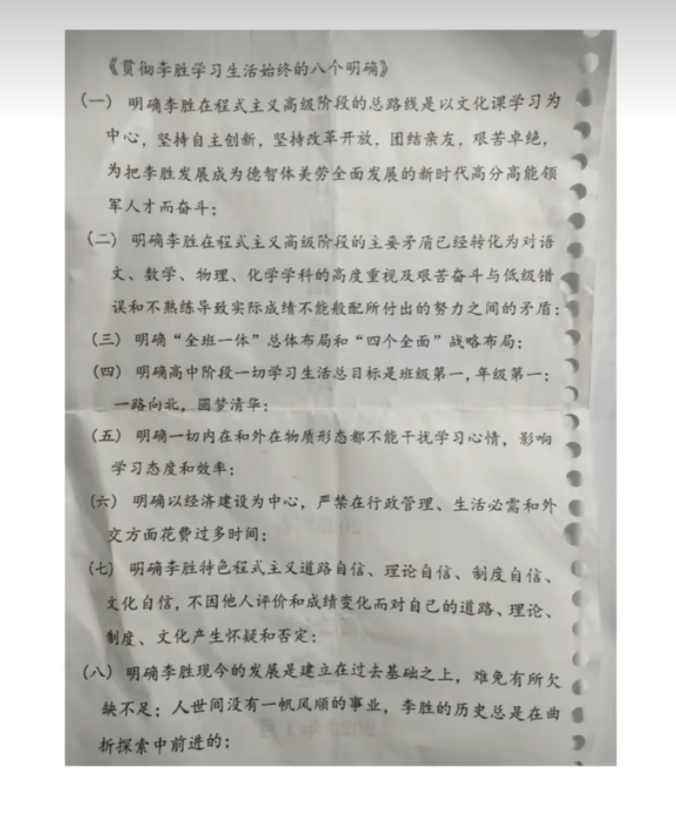 《贯彻李胜学习生活始终的八个明确》
(一) 明确李胜在程式主义高级阶段的总路线是以文化课学习为
中心，坚持自主创新，坚持改革开放，团结亲友，艰苦卓绝，
为把李胜发展成为德智体美劳全面发展的新时代高分高能领
军人才而奋斗；
(二) 明确李胜在程式主义高级阶段的主要矛盾已经转化为对语
文、数学、物理、化学学科的高度重视及艰苦奋斗与低级错
误和不熟练导致实际成绩不能般配所付出的努力之间的矛盾；
(三) 明确“全班一体”总体布局和“四个全面”战略布局；
(四) 明确高中阶段一切学习生活总目标是班级第一，年级第一；
一路向北，圆梦清华；
(五) 明确一切内在和外在物质形态都不能干扰学习心情，影响
学习态度和效率；
(六) 明确以经济建设为中心，严禁在行政管理、生活必需和外
交方面花费过多时间；
(七) 明确李胜特色程式主义道路自信、理论自信、制度自信、
文化自信，不因他人评价和成绩变化而对自己的道路、理论、
制度、文化产生怀疑和否定；
(八) 明确李胜现今的发展是建立在过去基础之上，难免有所欠
缺不足；人世间没有一帆风顺的事业，李胜的历史总是在曲
折探索中前进的；